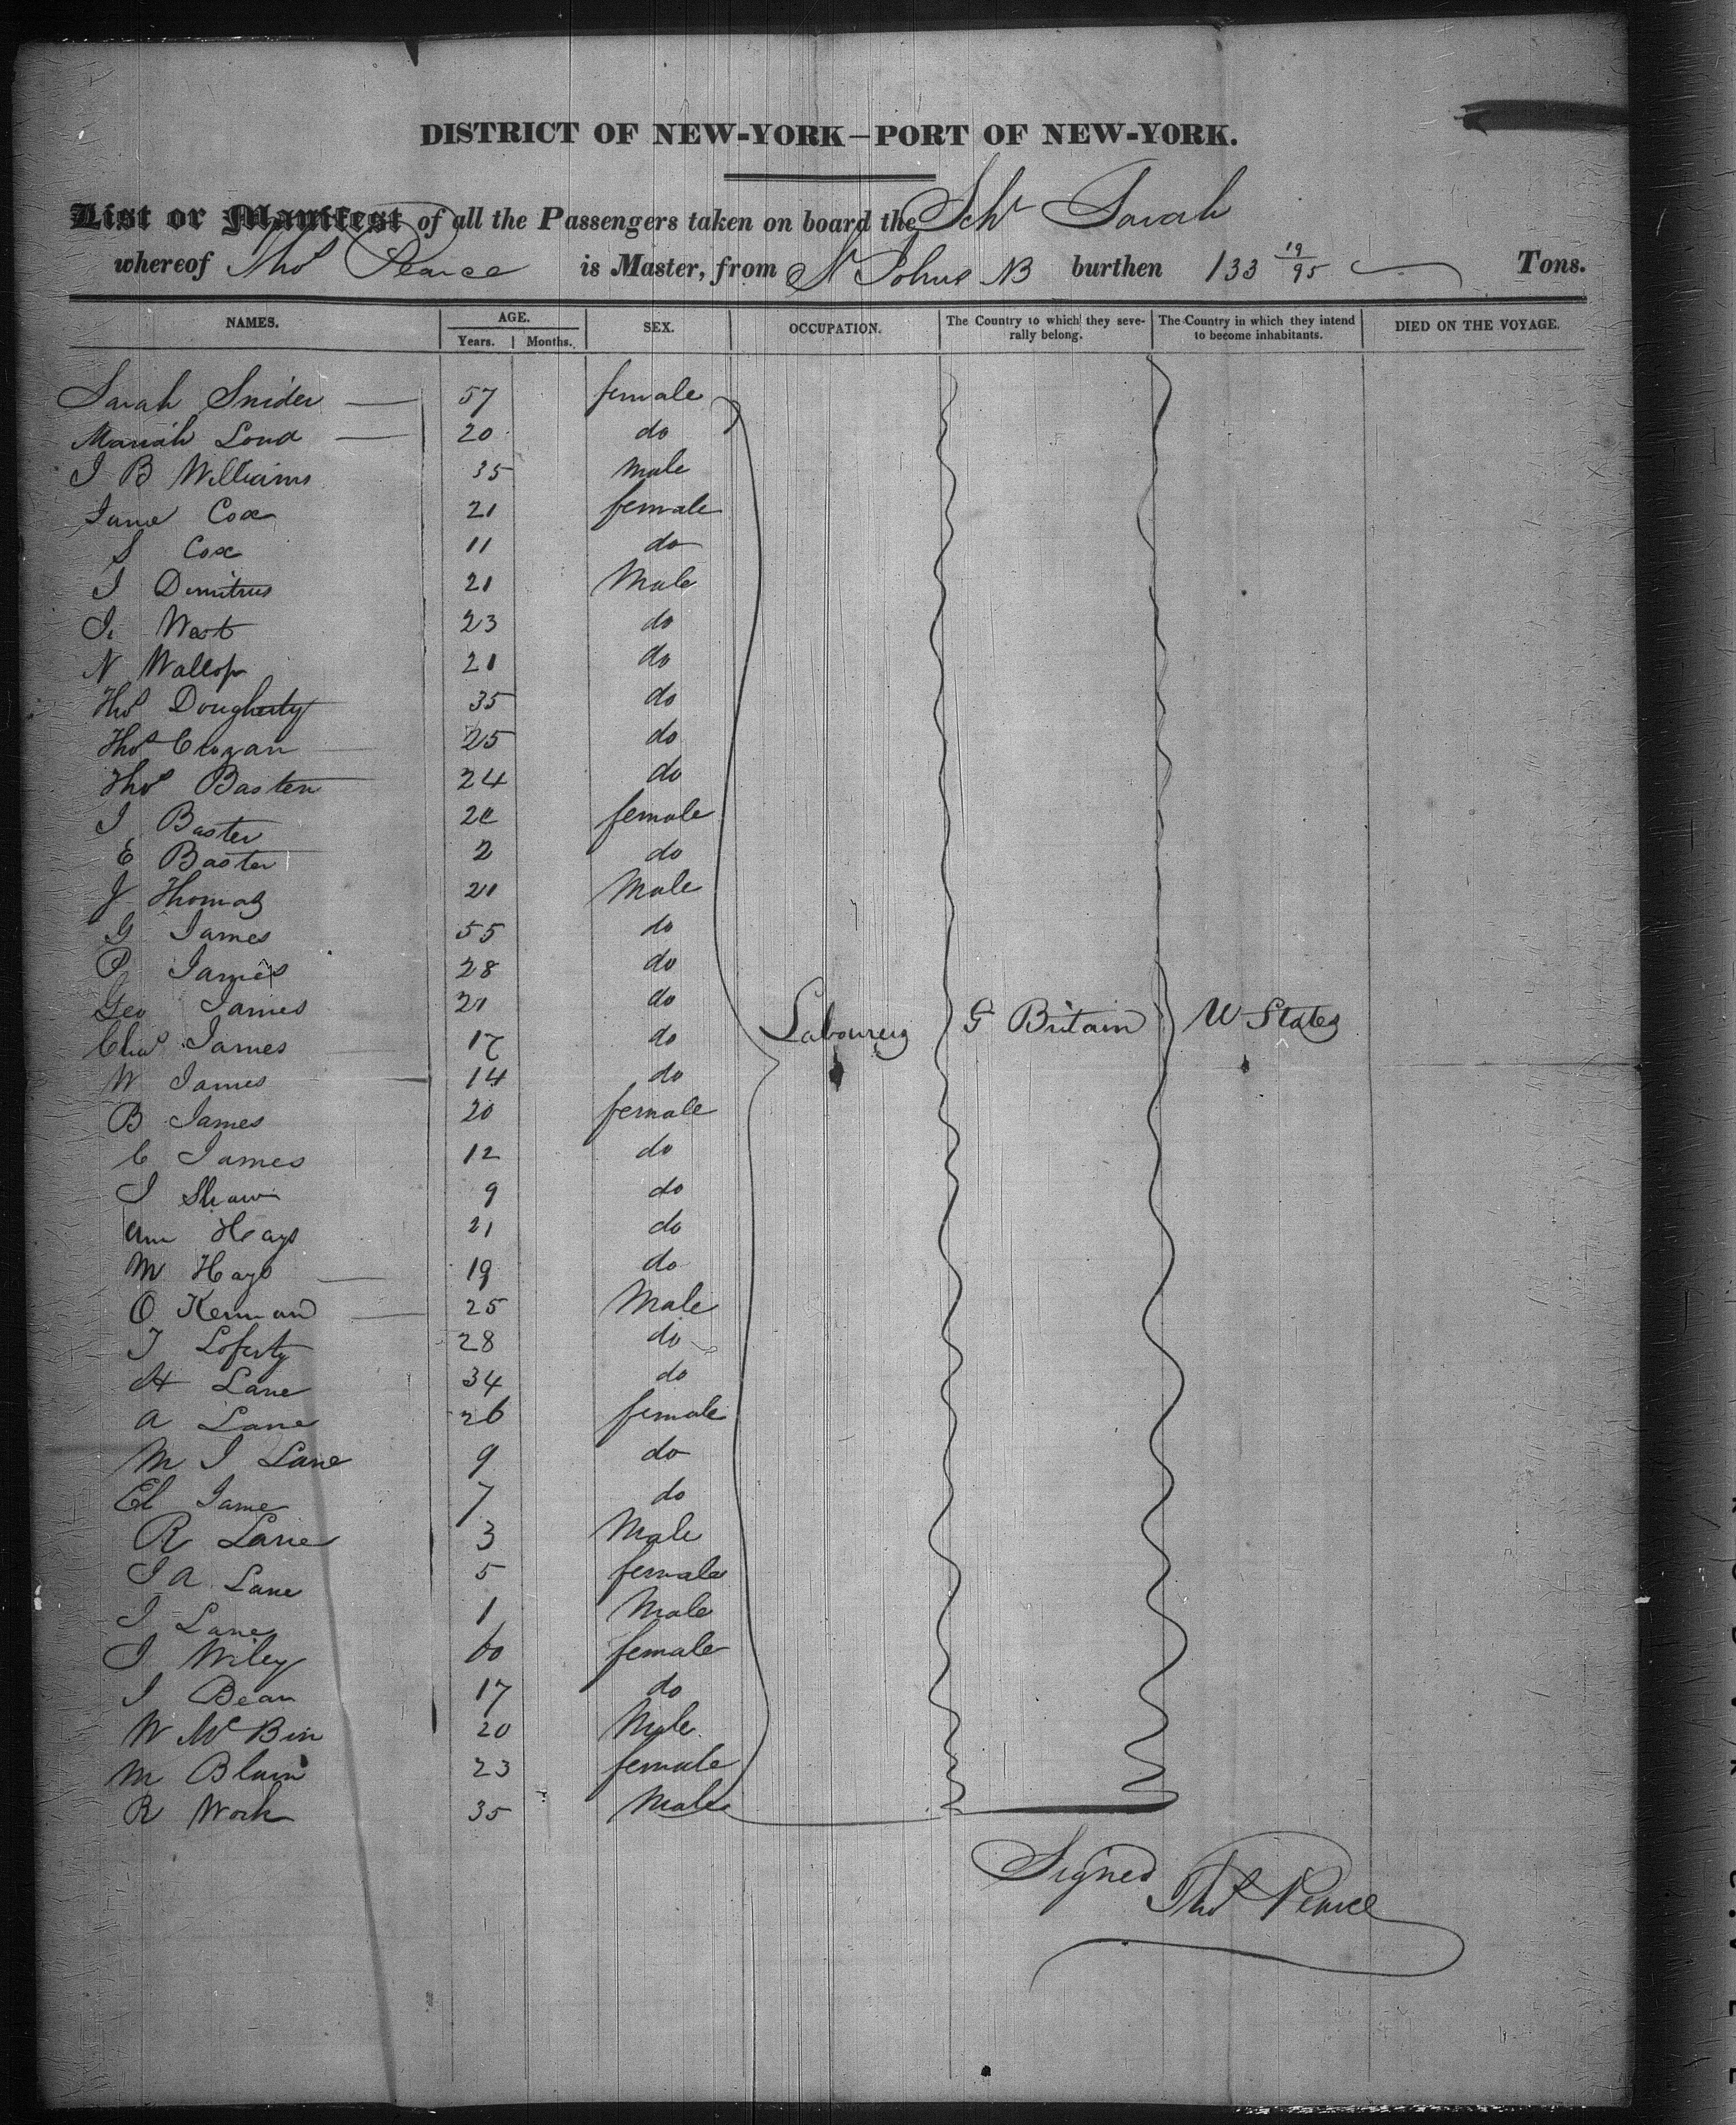 DISTRICT OF NEW-YORK—PORT OF NEW-YORK.
List or Manifest of all the Passengers taken on board the Schr Sarah
whereof Thos Pearce is Master, from St Johns NB burthen 133 19/95 Tons.
NAMES. AGE. SEX. OCCUPATION. The Country to which they severally belong. The Country in which they intend to become inhabitants. DIED ON THE VOYAGE.
Years. Months.
Sarah Snider 57 female
Mariah Loud 20 do
I B Williams 35 Male
Jane Cox 21 female
S Cox 11 do
I Dimitrus 21 Male
I. West 23 do
N Wallop 21 do
Thos Dougherty 35 do
Thos Crogan 25 do
Thos Baster 24 do
I Baster 20 female
E Baster 2 do
J Thomas 21 Male
G James 55 do
P James 28 do
Geo James 21 do
Chas James 17 do Labourers G Britain U States
W James 14 do
B James 20 female
C James 12 do
I Shaw 9 do
Ann Hays 21 do
M Hays 19 do
O Kernand 25 Male
T Loferty 28 do
H Lane 34 do
A Lane 26 female
M I Lane 9 do
El Jame 7 do
R Lane 3 Male
I A Lane 5 female
I Lane 1 Male
I Wiley 60 female
I Bean 17 do
W Mc Bin 20 Male
M Blain 23 female
R Work 35 Male
Signed Thos Pearce